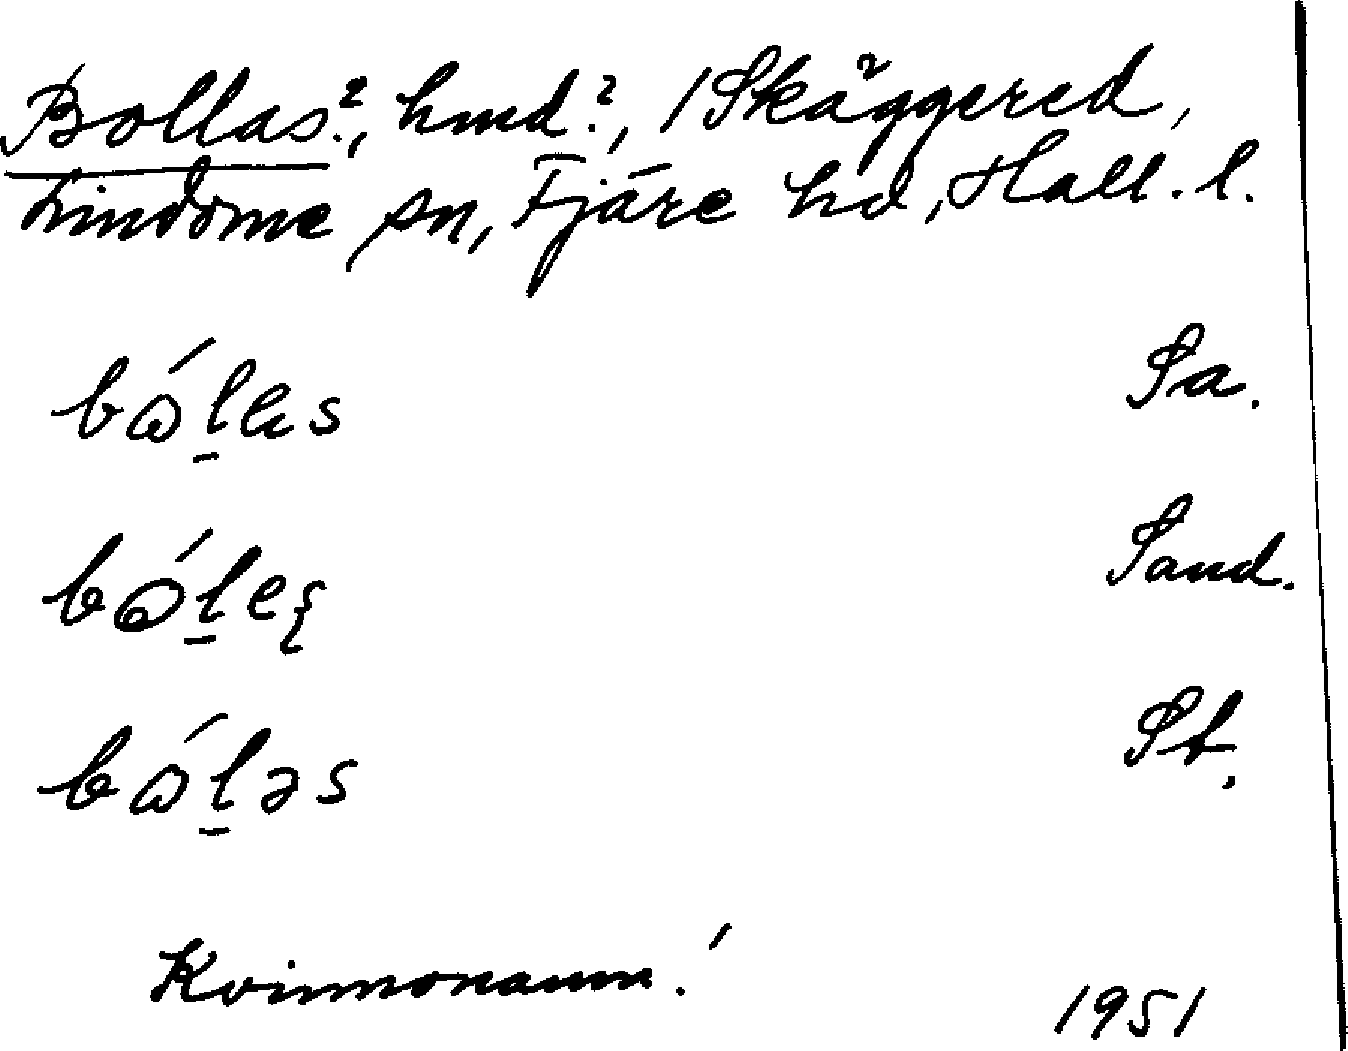 Bollas?, hmd?, /Skäggered,
Lindome sn, Fjäre hd, Hall. l.
bɷ́l̠as Sa.
bɷ́l̠eş Sand.
bɷ́l̠əs St.
Kvinnonamn!
1951